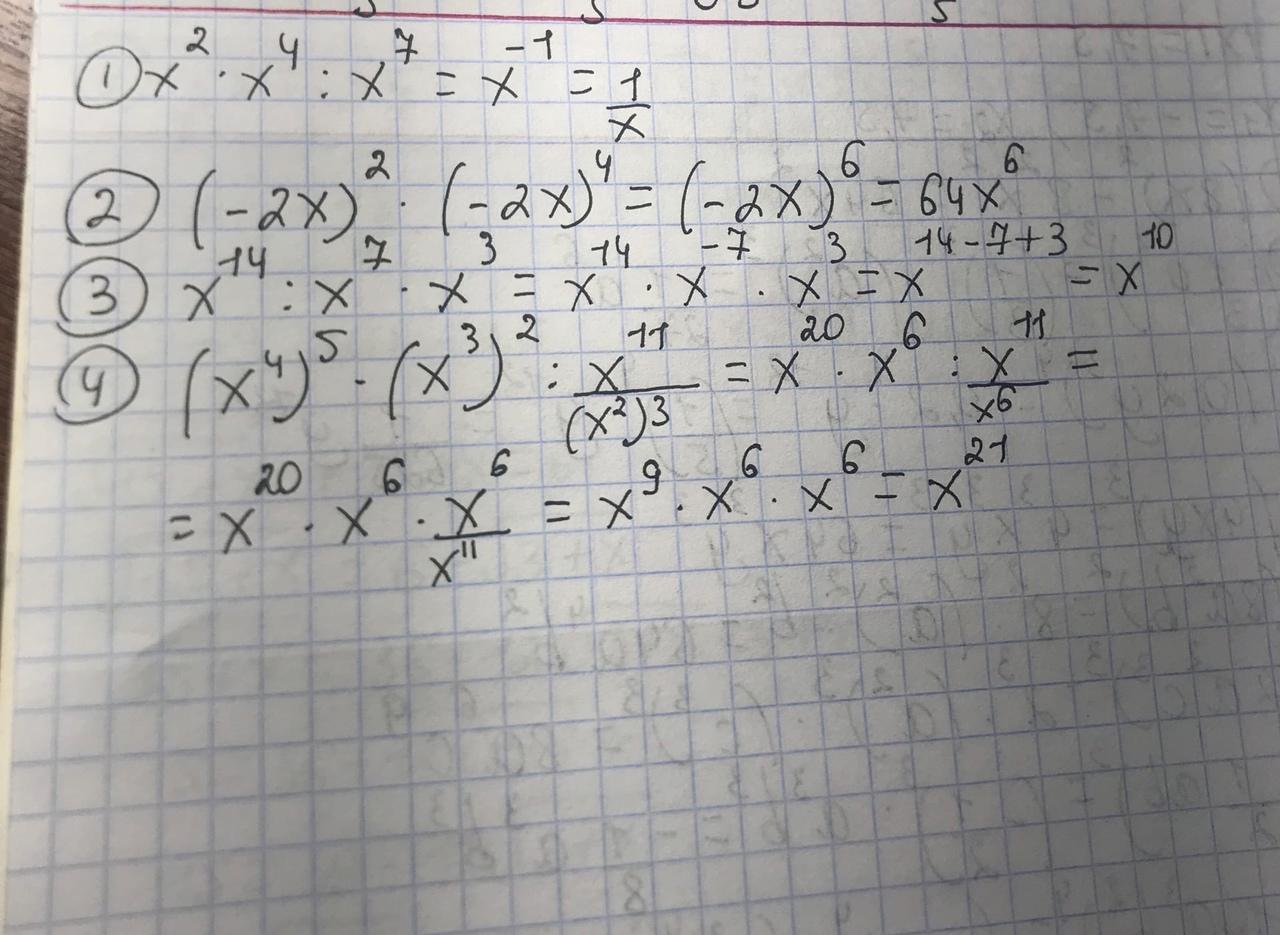 ① x² · x⁴ : x⁷ = x⁻¹ = 1/x
② (-2x)² · (-2x)⁴ = (-2x)⁶ = 64x⁶
③ x¹⁴ : x⁷ · x³ = x¹⁴ · x⁻⁷ · x³ = x¹⁴⁻⁷⁺³ = x¹⁰
④ (x⁴)⁵ · (x³)² : x¹¹/(x²)³ = x²⁰ · x⁶ : x¹¹/x⁶ =
= x²⁰ · x⁶ · x⁶/x¹¹ = x⁹ · x⁶ · x⁶ = x²¹